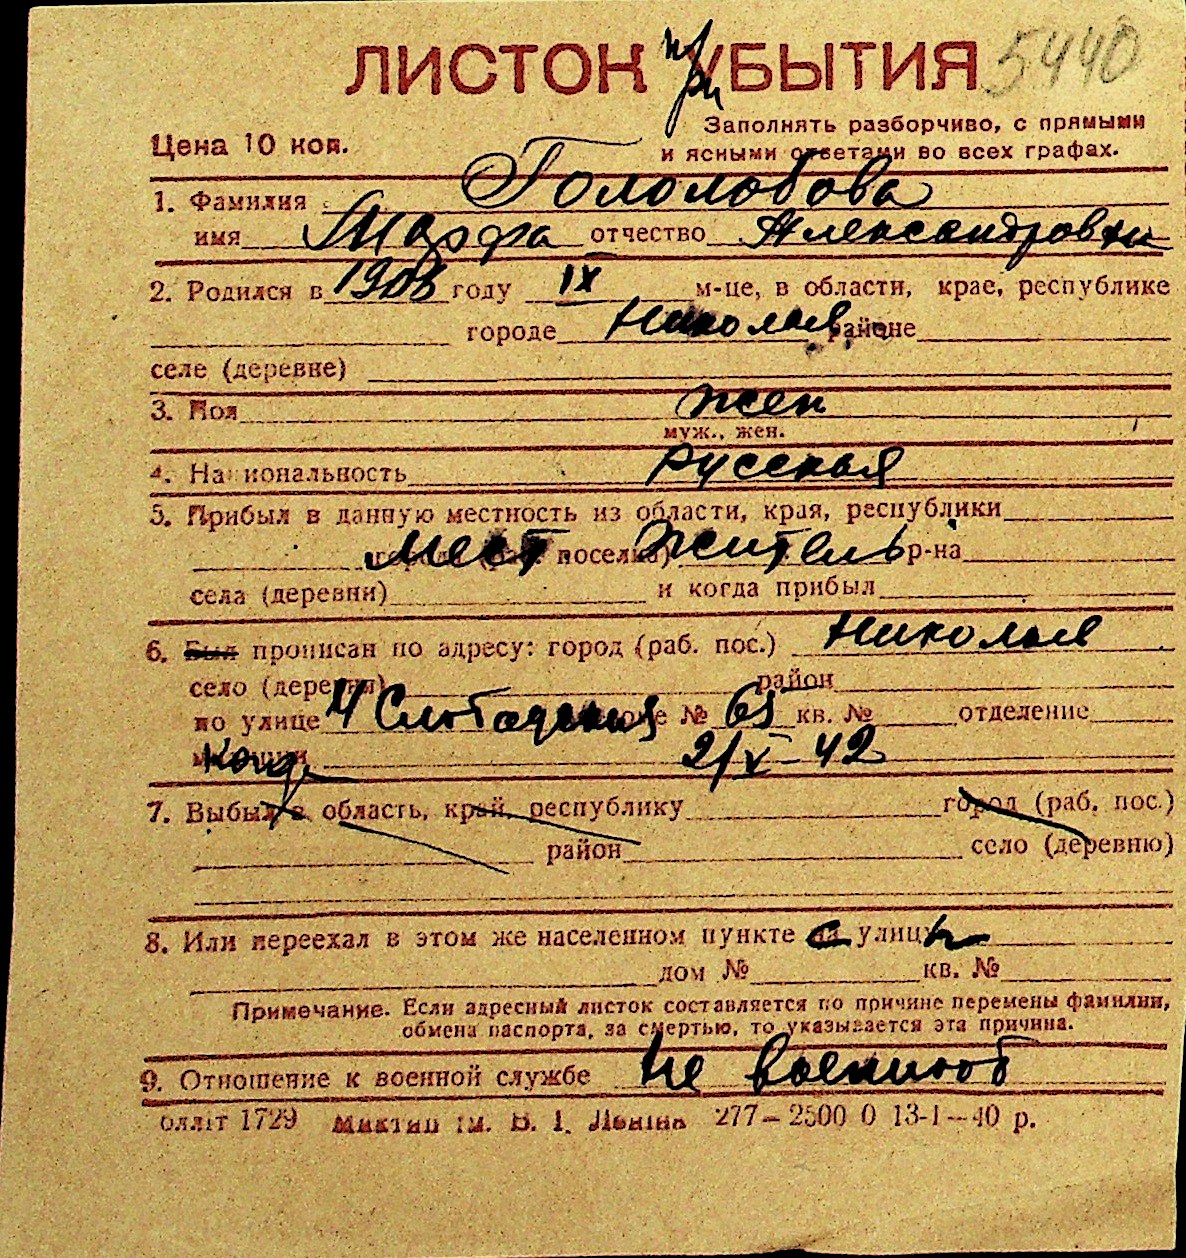 ЛИСТОК при УБЫТИЯ 5440
Заполнять разборчиво, с прямыми
Цена 10 коп. и ясными ответами во всех графах.
1. Фамилия Гололобова
имя Марфа отчество Александровна
2. Родился в 1908 году IX м-це, в области, крае, республике
городе Николаев районе
селе (деревне)
3. Пол жен
муж., жен.
4. Национальность русская
5. Прибыл в данную местность из области, края, республики
города (раб. поселка) мест житель р-на
села (деревни) и когда прибыл
6. Был прописан по адресу: город (раб. пос.) Николаев
село (деревня) район
по улице 4 Слободская № 65 кв. № отделение
милиции когда 2/X-42
7. Выбыл в область, край, республику город (раб. пос.)
район село (деревню)
8. Или переехал в этом же населенном пункте с улицы
дом № кв. №
Примечание. Если адресный листок составляется по причине перемены фамилии,
обмена паспорта, за смертью, то указывается эта причина.
9. Отношение к военной службе не военнооб
1729 ім. В. І. Леніна 277—2500 0 13-I—40 р.